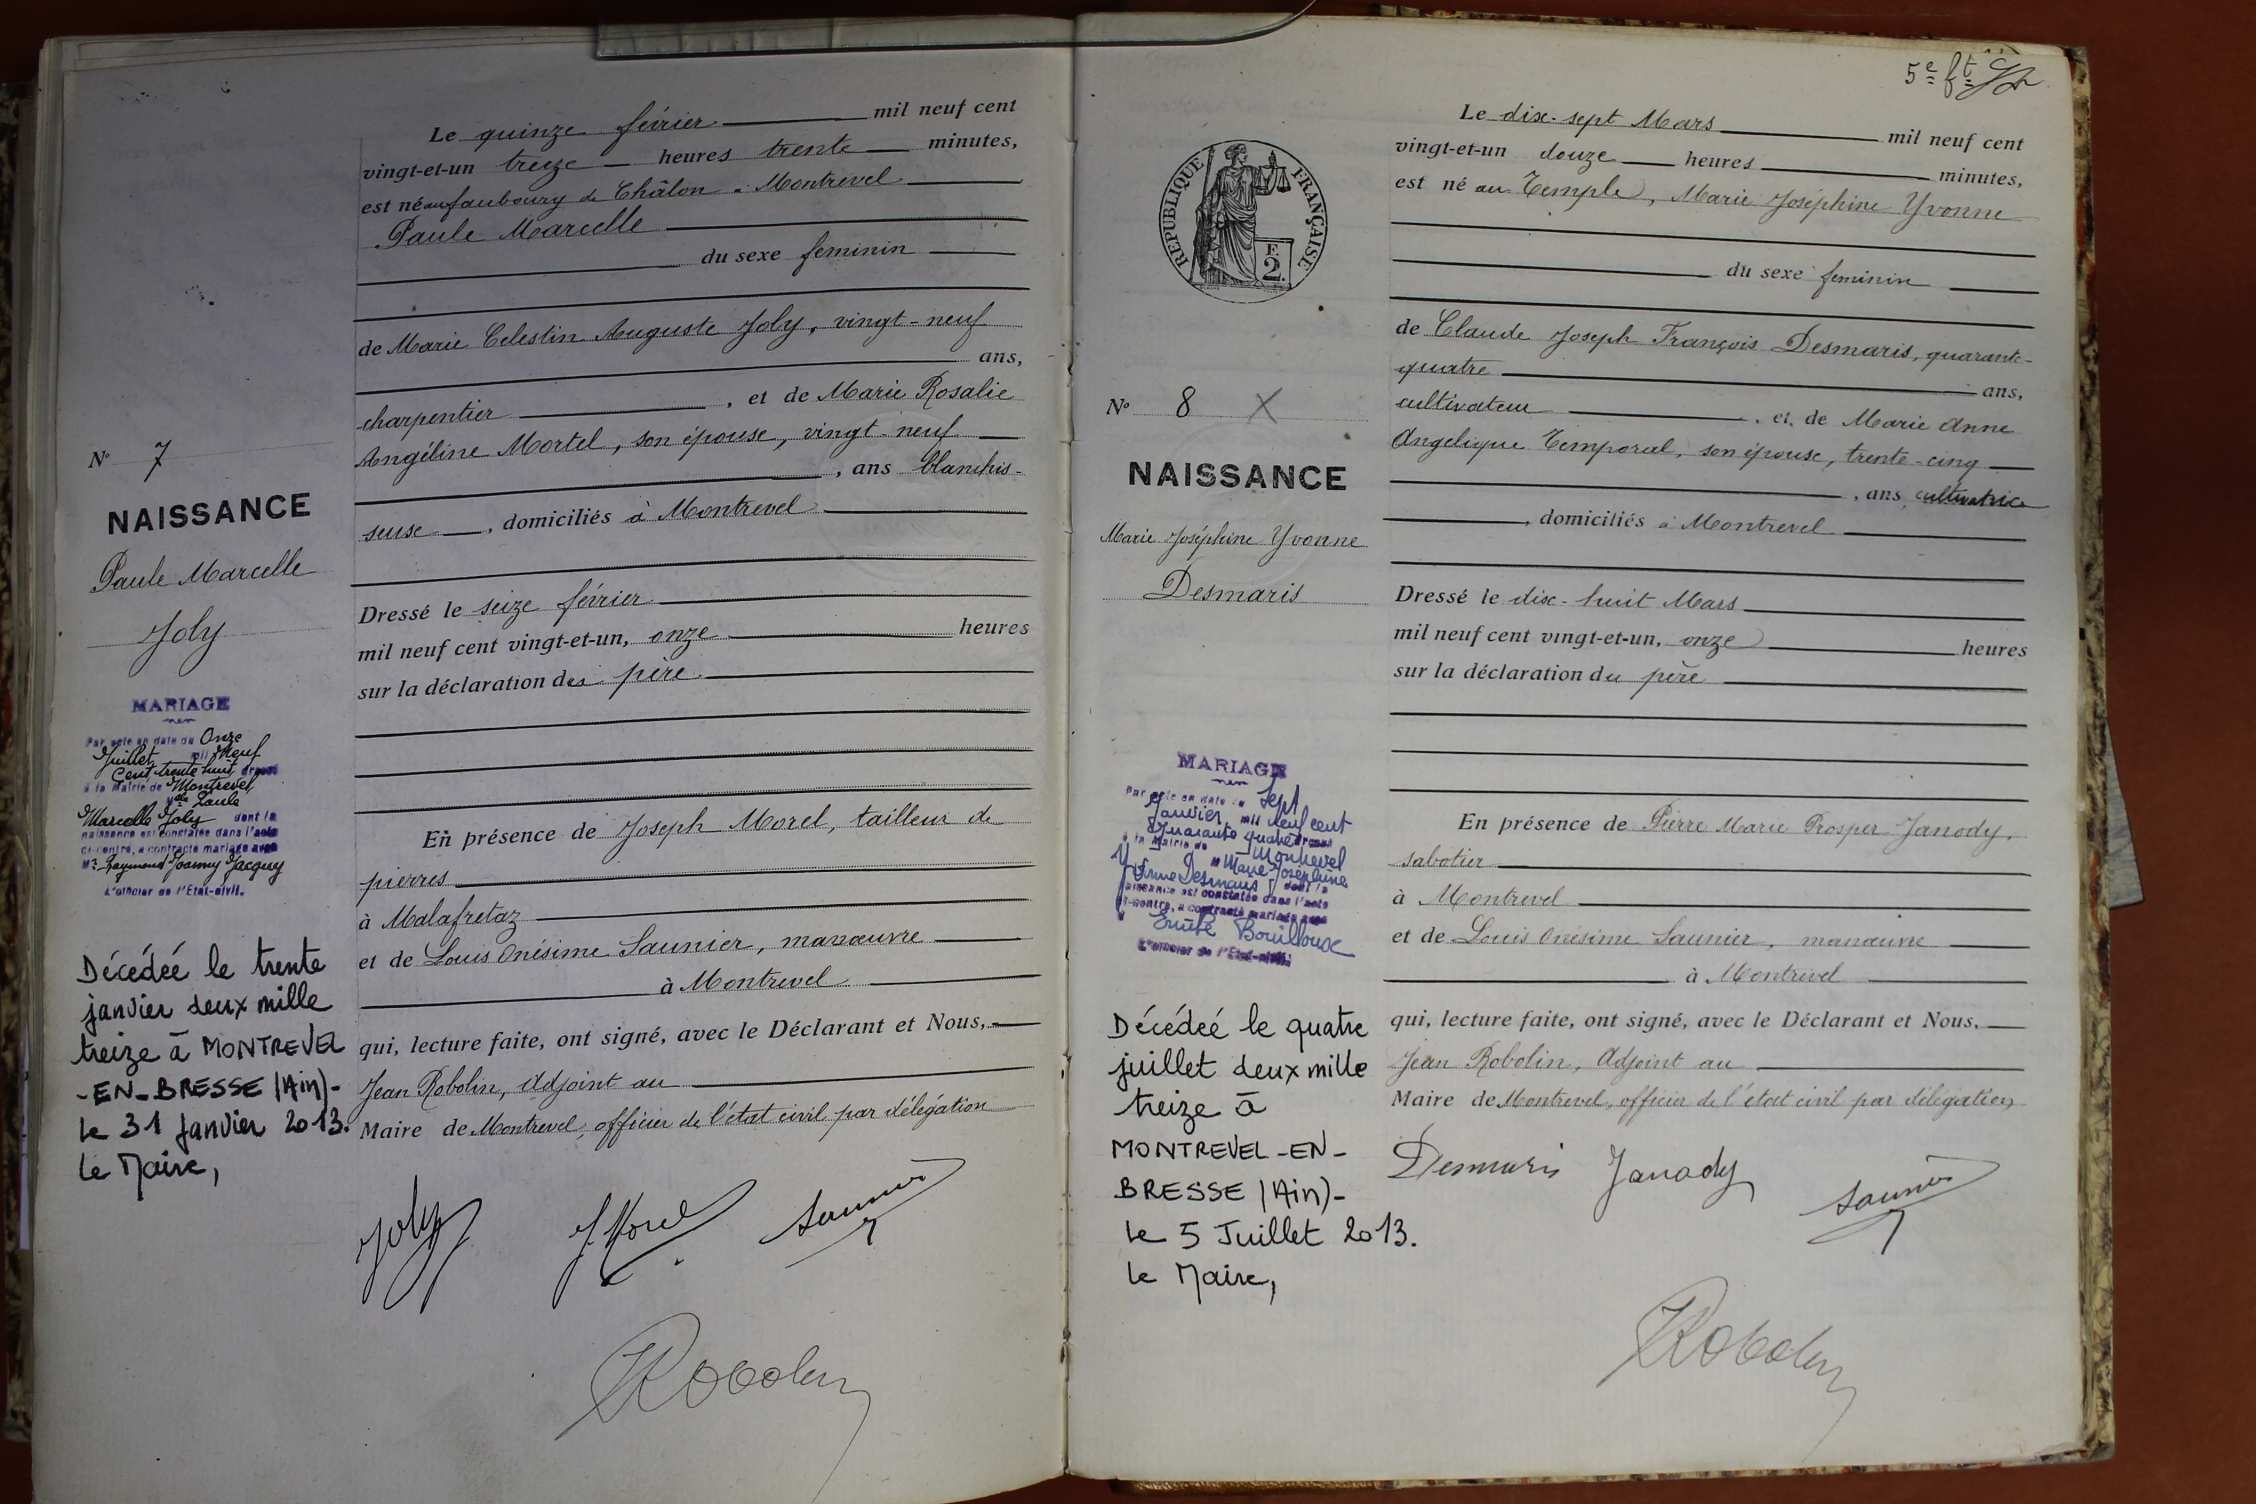 Le quinze février mil neuf cent
vingt-et-un treize heures trente minutes,
est né au faubourg de Châlon à Montrevel
Paule Marcelle
du sexe feminin
de Marie Celestin Auguste Joly, vingt-neuf
ans,
charpentier, et de Marie Rosalie
Angéline Mortel, son épouse, vingt-neuf
, ans blanchis-
seuse, domiciliés à Montrevel
Dressé le seize février
mil neuf cent vingt-et-un, onze heures
sur la déclaration du père
En présence de Joseph Morel, tailleur de
pierres
à Malafretaz
et de Louis Onésime Saunier, manœuvre
à Montrevel
qui, lecture faite, ont signé, avec le Déclarant et Nous,
Jean Robolin, Adjoint au
Maire de Montrevel, officier de l'état civil par délégation
Joly J Morel Saunier
Robolin
N° 7
NAISSANCE
Paule Marcelle
Joly
MARIAGE
Par acte en date du Onze
Juillet mil Neuf
Cent trente huit dressé
à la Mairie de Montrevel
Mlle Paule
Marcelle Joly dont la
naissance est constatée dans l'acte
ci-contre, a contracté mariage avec
Mr Raymond Joanny Jacquy
L'officier de l'Etat-civil.
Décédée le trente
janvier deux mille
treize à MONTREVEL
-EN-BRESSE (Ain)-
Le 31 Janvier 2013.
Le Maire,
5e ft
Le dix-sept Mars mil neuf cent
vingt-et-un douze heures minutes,
est né au Temple, Marie Joséphine Yvonne
du sexe feminin
de Claude Joseph François Desmaris, quarante-
quatre ans,
cultivateur, et de Marie Anne
Angelique Temporal, son épouse, trente-cinq
, ans cultivatrice
, domiciliés à Montrevel
Dressé le dix-huit Mars
mil neuf cent vingt-et-un, onze heures
sur la déclaration du père
En présence de Pierre Marie Prosper Janody,
sabotier
à Montrevel
et de Louis Onésime Saunier, manœuvre
à Montrevel
qui, lecture faite, ont signé, avec le Déclarant et Nous,
Jean Robolin, Adjoint au
Maire de Montrevel, officier de l'état civil par délégation
Desmaris Janody Saunier
Robolin
RÉPUBLIQUE FRANÇAISE
F.
2.
N° 8 X
NAISSANCE
Marie Joséphine Yvonne
Desmaris
MARIAGE
Par acte en date du Sept
Janvier mil neuf cent
Quarante quatre dressé
à la Mairie de Montrevel
Marie Joséphine
Yvonne Desmaris dont la
naissance est constatée dans l'acte
ci-contre, a contracté mariage avec
Bouilloux
L'officier de l'Etat-civil
Décédée le quatre
juillet deux mille
treize à
MONTREVEL-EN-
BRESSE (Ain)-
Le 5 Juillet 2013.
Le Maire,